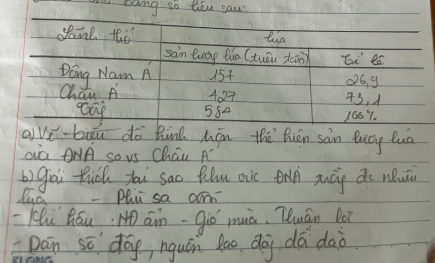 bảng số liệu sau.
Lãnh thổ Lúa
Sản lượng lúa (triệu tấn) Tỉ lệ
Đông Nam Á 157 26,9
Châu Á 427 73,1
584 100%
a) Vẽ biểu đồ hình tròn thể hiện sản lượng lúa
của ĐNÁ so vs Châu Á
b) Giải thích tại sao khu vực ĐNÁ đc nhiều
lúa - Phù sa
- Khí hậu: NĐ ẩm - Gió mùa. Thuận lợi
- Dân số đông, nguồn lao động dồi dào
KLONG